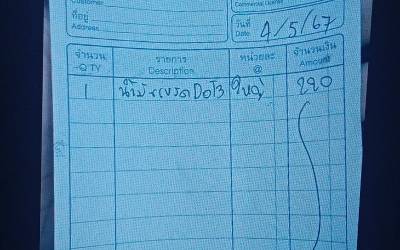 Customer
ที่อยู่
Address
Commercial License
วันที่ 4/5/67
Date
จำนวน รายการ หน่วยละ จำนวนเงิน
Q'TY Description @ Amount
1 น้ำมันเบรค DOT3 ใหญ่ 220